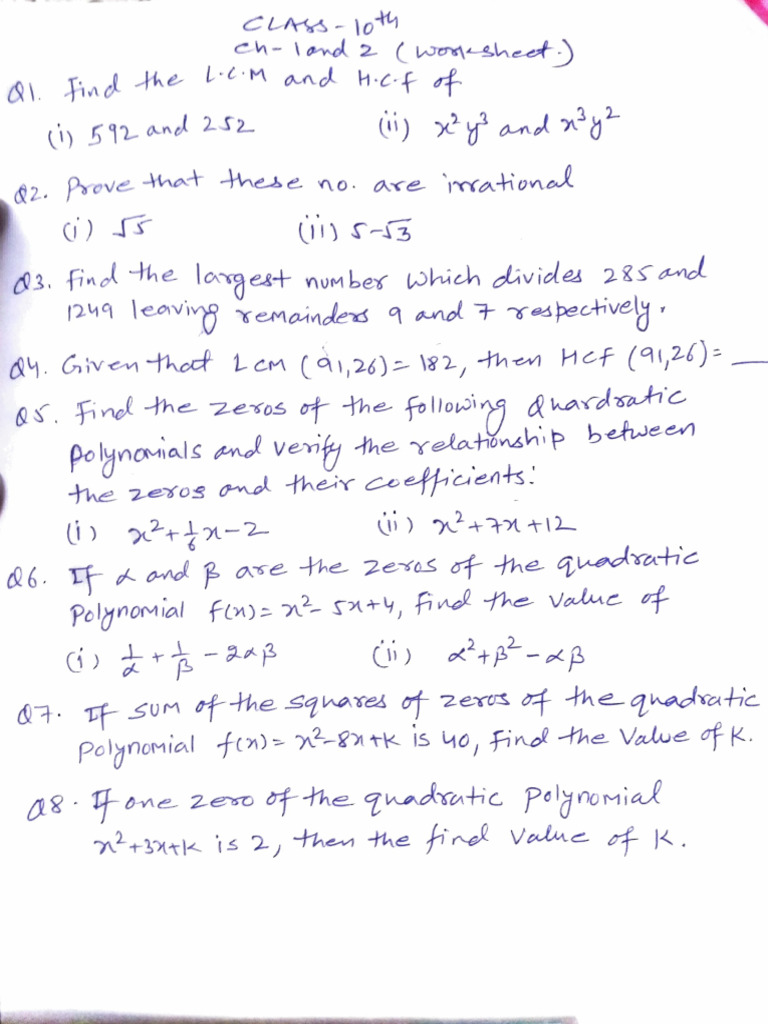 CLASS-10th
Ch-1 and 2 (worksheet.)
Q1. Find the L.C.M and H.C.f of
(i) 592 and 252 (ii) x²y³ and x³y²
Q2. Prove that these no. are irrational
(i) √5 (ii) 5-√3
Q3. find the largest number which divides 285 and
1249 leaving remainders 9 and 7 respectively.
Q4. Given that LCM (91,26)= 182, then HCf (91,26)= __
Q5. Find the zeros of the following Quardratic
Polynomials and verify the relationship between
the zeros and their coefficients:
(i) x²+1/6x-2 (ii) x²+7x+12
Q6. If α and β are the zeros of the quadratic
Polynomial f(x)= x²-5x+4, find the value of
(i) 1/α + 1/β - 2αβ (ii) α²+β²-αβ
Q7. If sum of the squares of zeros of the quadratic
Polynomial f(x)= x²-8x+k is 40, find the Value of K.
Q8. If one zero of the quadratic Polynomial
x²+3x+k is 2, then the find Value of K.